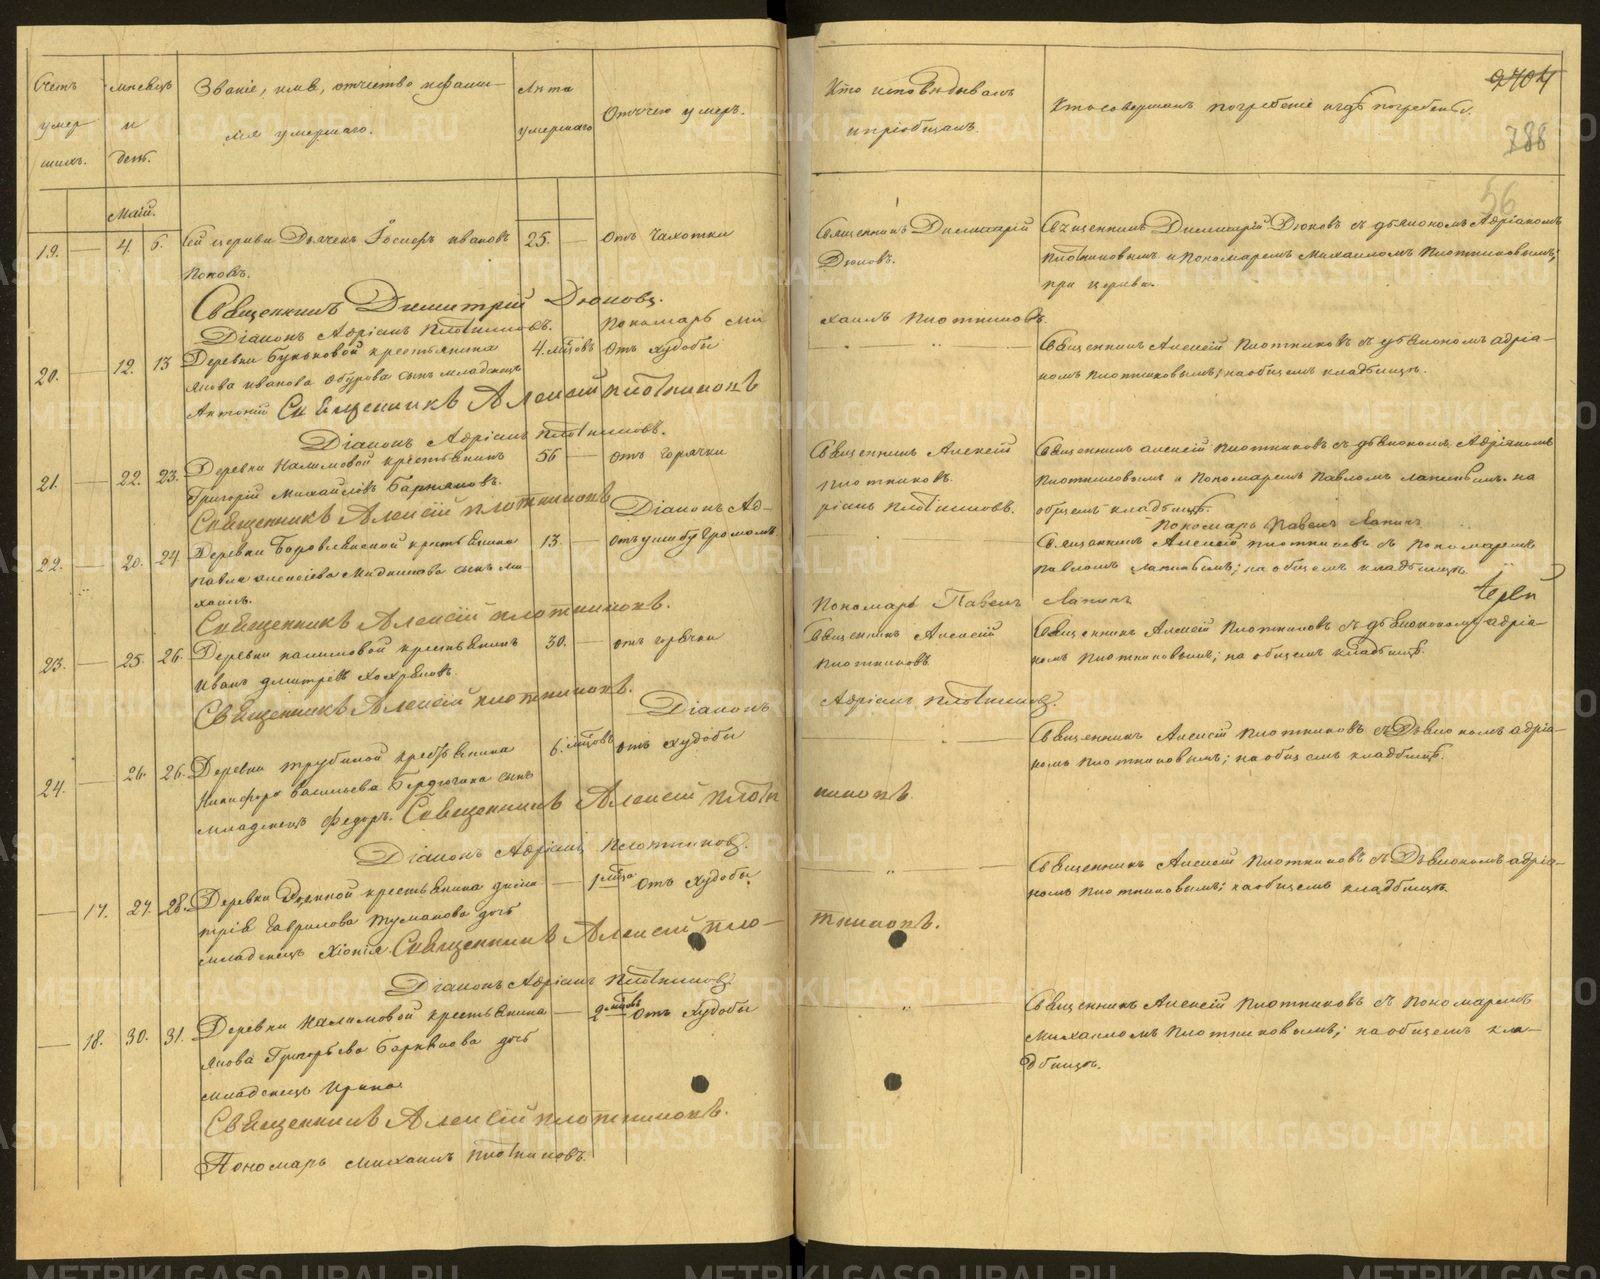 Счетъ умершихъ.
Мѣсяцъ и день.
Званіе, имя, отчество и фамилія умершаго.
Лѣта умершаго
Отчего умеръ.
Кто исповѣдывалъ и пріобщалъ.
Кто совершалъ погребеніе и гдѣ погребены.
2404
788
56
Маій.
19. — 4. 6. Сей церкви Дьячекъ Іосифъ Ивановъ 25. — отъ Чахотки
Поповъ.
Священникъ Димитрій Дюковъ.
Священникъ Димитрій Дюковъ съ дьякономъ Адріаномъ
Дюковъ.
Плотниковымъ и Пономаремъ Михаиломъ Плотниковымъ;
при церкви.
Священникъ Димитрій Дюковъ.
Діаконъ Адріанъ Плотниковъ. Пономарь Михаилъ Плотниковъ.
20. — 12. 13 Деревни Буньковой крестьянина 4. мѣсяцовъ отъ худобы
Якова Иванова сынъ младенецъ
Антоній
Священникъ Алексѣй Плотниковъ съ дьякономъ Адріа-
номъ Плотниковымъ; на общемъ кладбищѣ.
Священникъ Алексѣй Плотниковъ
Діаконъ Адріанъ Плотниковъ.
21. — 22. 23. Деревни Налимовой крестьянинъ 56 — отъ горячки
Григорій Михайловъ
Священникъ Алексѣй
Плотниковъ.
Священникъ Алексѣй Плотниковъ съ дьякономъ Адріаномъ
Плотниковымъ и Пономаремъ Павломъ Лапинымъ. на
общемъ кладбищѣ.
Священникъ Алексѣй Плотниковъ
Діаконъ Адріанъ Плотниковъ.
Пономарь Павелъ Лапинъ
22. — 20. 24. Деревни крестьянина 13. — отъ ушибу громомъ
Павла Алексѣева сынъ Ми-
хаилъ.
Священникъ Алексѣй Плотниковъ съ Пономаремъ
Павломъ Лапинымъ; на общемъ кладбищѣ.
Священникъ Алексѣй Плотниковъ.
Пономарь Павелъ Лапинъ
Іерей
23. — 25. 26. Деревни Налимовой крестьянинъ 30. — отъ горячки
Иванъ Дмитріевъ Хохряковъ.
Священникъ Алексѣй
Плотниковъ
Священникъ Алексѣй Плотниковъ съ дьякономъ Адріа-
номъ Плотниковымъ; на общемъ кладбищѣ.
Священникъ Алексѣй Плотниковъ.
Діаконъ Адріанъ Плотниковъ.
24. — 26. 26. Деревни Трубиной крестьянина 6. мѣсяцовъ отъ худобы
Никифора Васильева сынъ
младенецъ Федоръ.
Священникъ Алексѣй Плотниковъ съ Дьякономъ Адріа-
номъ Плотниковымъ; на общемъ кладбищѣ.
Священникъ Алексѣй Плотниковъ.
Діаконъ Адріанъ Плотниковъ.
— 17. 27. 28. Деревни крестьянина Дими- — 1 мѣсяца отъ худобы
трія Гаврилова Туманова дочь
младенецъ Хіонія.
Священникъ Алексѣй Плотниковъ съ Дьякономъ Адріа-
номъ Плотниковымъ; на общемъ кладбищѣ.
Священникъ Алексѣй Плотниковъ.
Діаконъ Адріанъ Плотниковъ
— 18. 30. 31. Деревни Налимовой крестьянина — 2 мѣсяцовъ отъ худобы
Якова Григорьева дочь
младенецъ Ирина
Священникъ Алексѣй Плотниковъ съ Пономаремъ
Михаиломъ Плотниковымъ; на общемъ кла-
дбищѣ.
Священникъ Алексѣй Плотниковъ.
Пономарь Михаилъ Плотниковъ.
METRIKI.GASO-URAL.RU